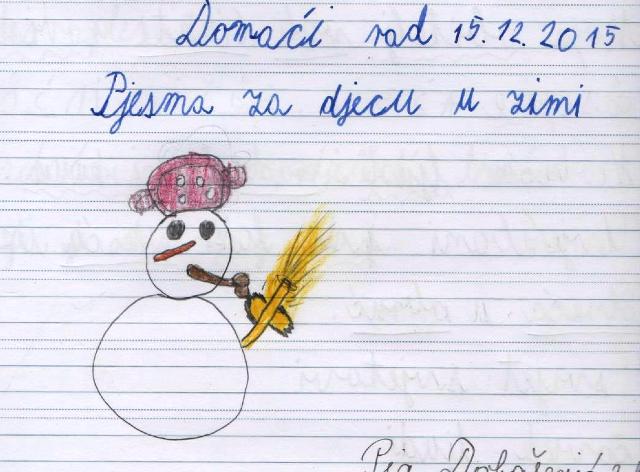 Domaći rad 15.12.2015
Pjesma za djecu u zimi
Pia